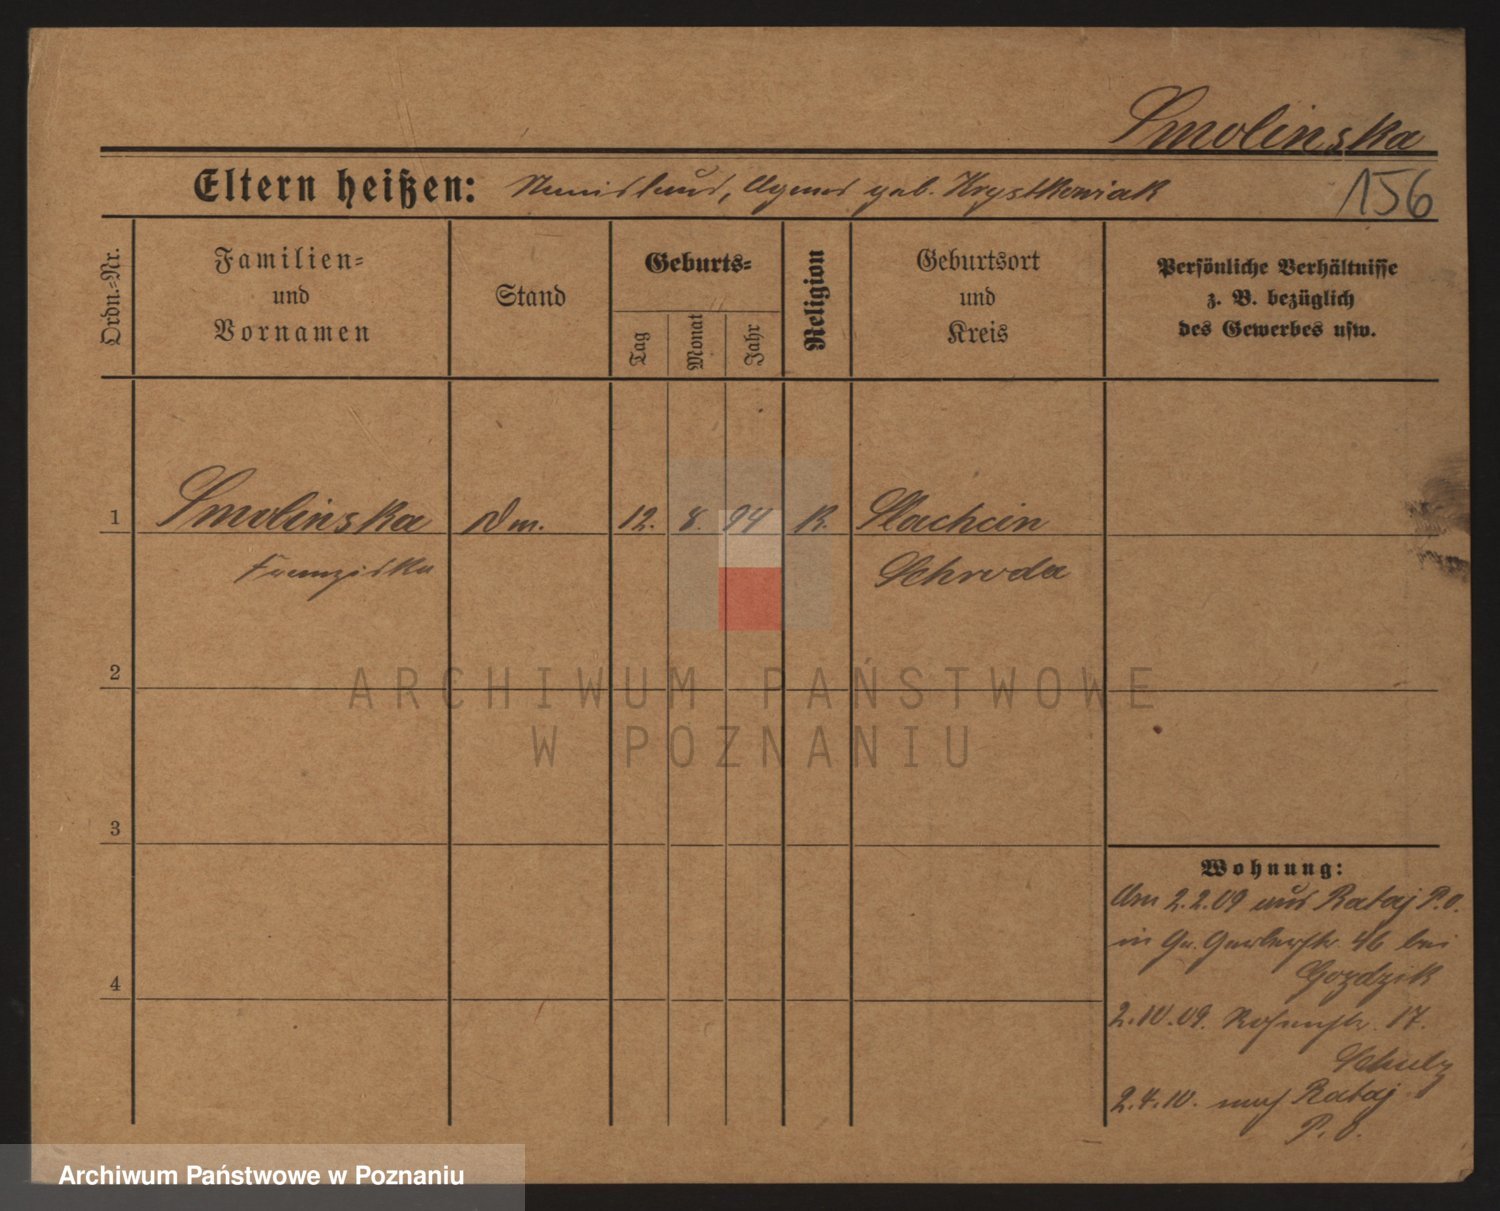 Smolinska
Eltern heißen: Stanislaus, Agnes geb. Krystkowiak
156
Ordn.-Nr.
Familien-
und
Vornamen
Stand
Geburts-
Tag
Monat
Jahr
Religion
Geburtsort
und
Kreis
Persönliche Verhältnisse
z. B. bezüglich
des Gewerbes usw.
1 Smolinska Dm. 12. 8. 94 K. Slachcin
Franziska Schroda
2
3
4
Wohnung:
Am 2.2.09 aus Rataj P.O.
in Gr. Gerberstr. 46 bei
Gozdzik
2.10.09. Rosenstr. 17.
Schulz
2.4.10. nach Rataj
P.O.
ARCHIWUM PAŃSTWOWE
W POZNANIU
Archiwum Państwowe w Poznaniu